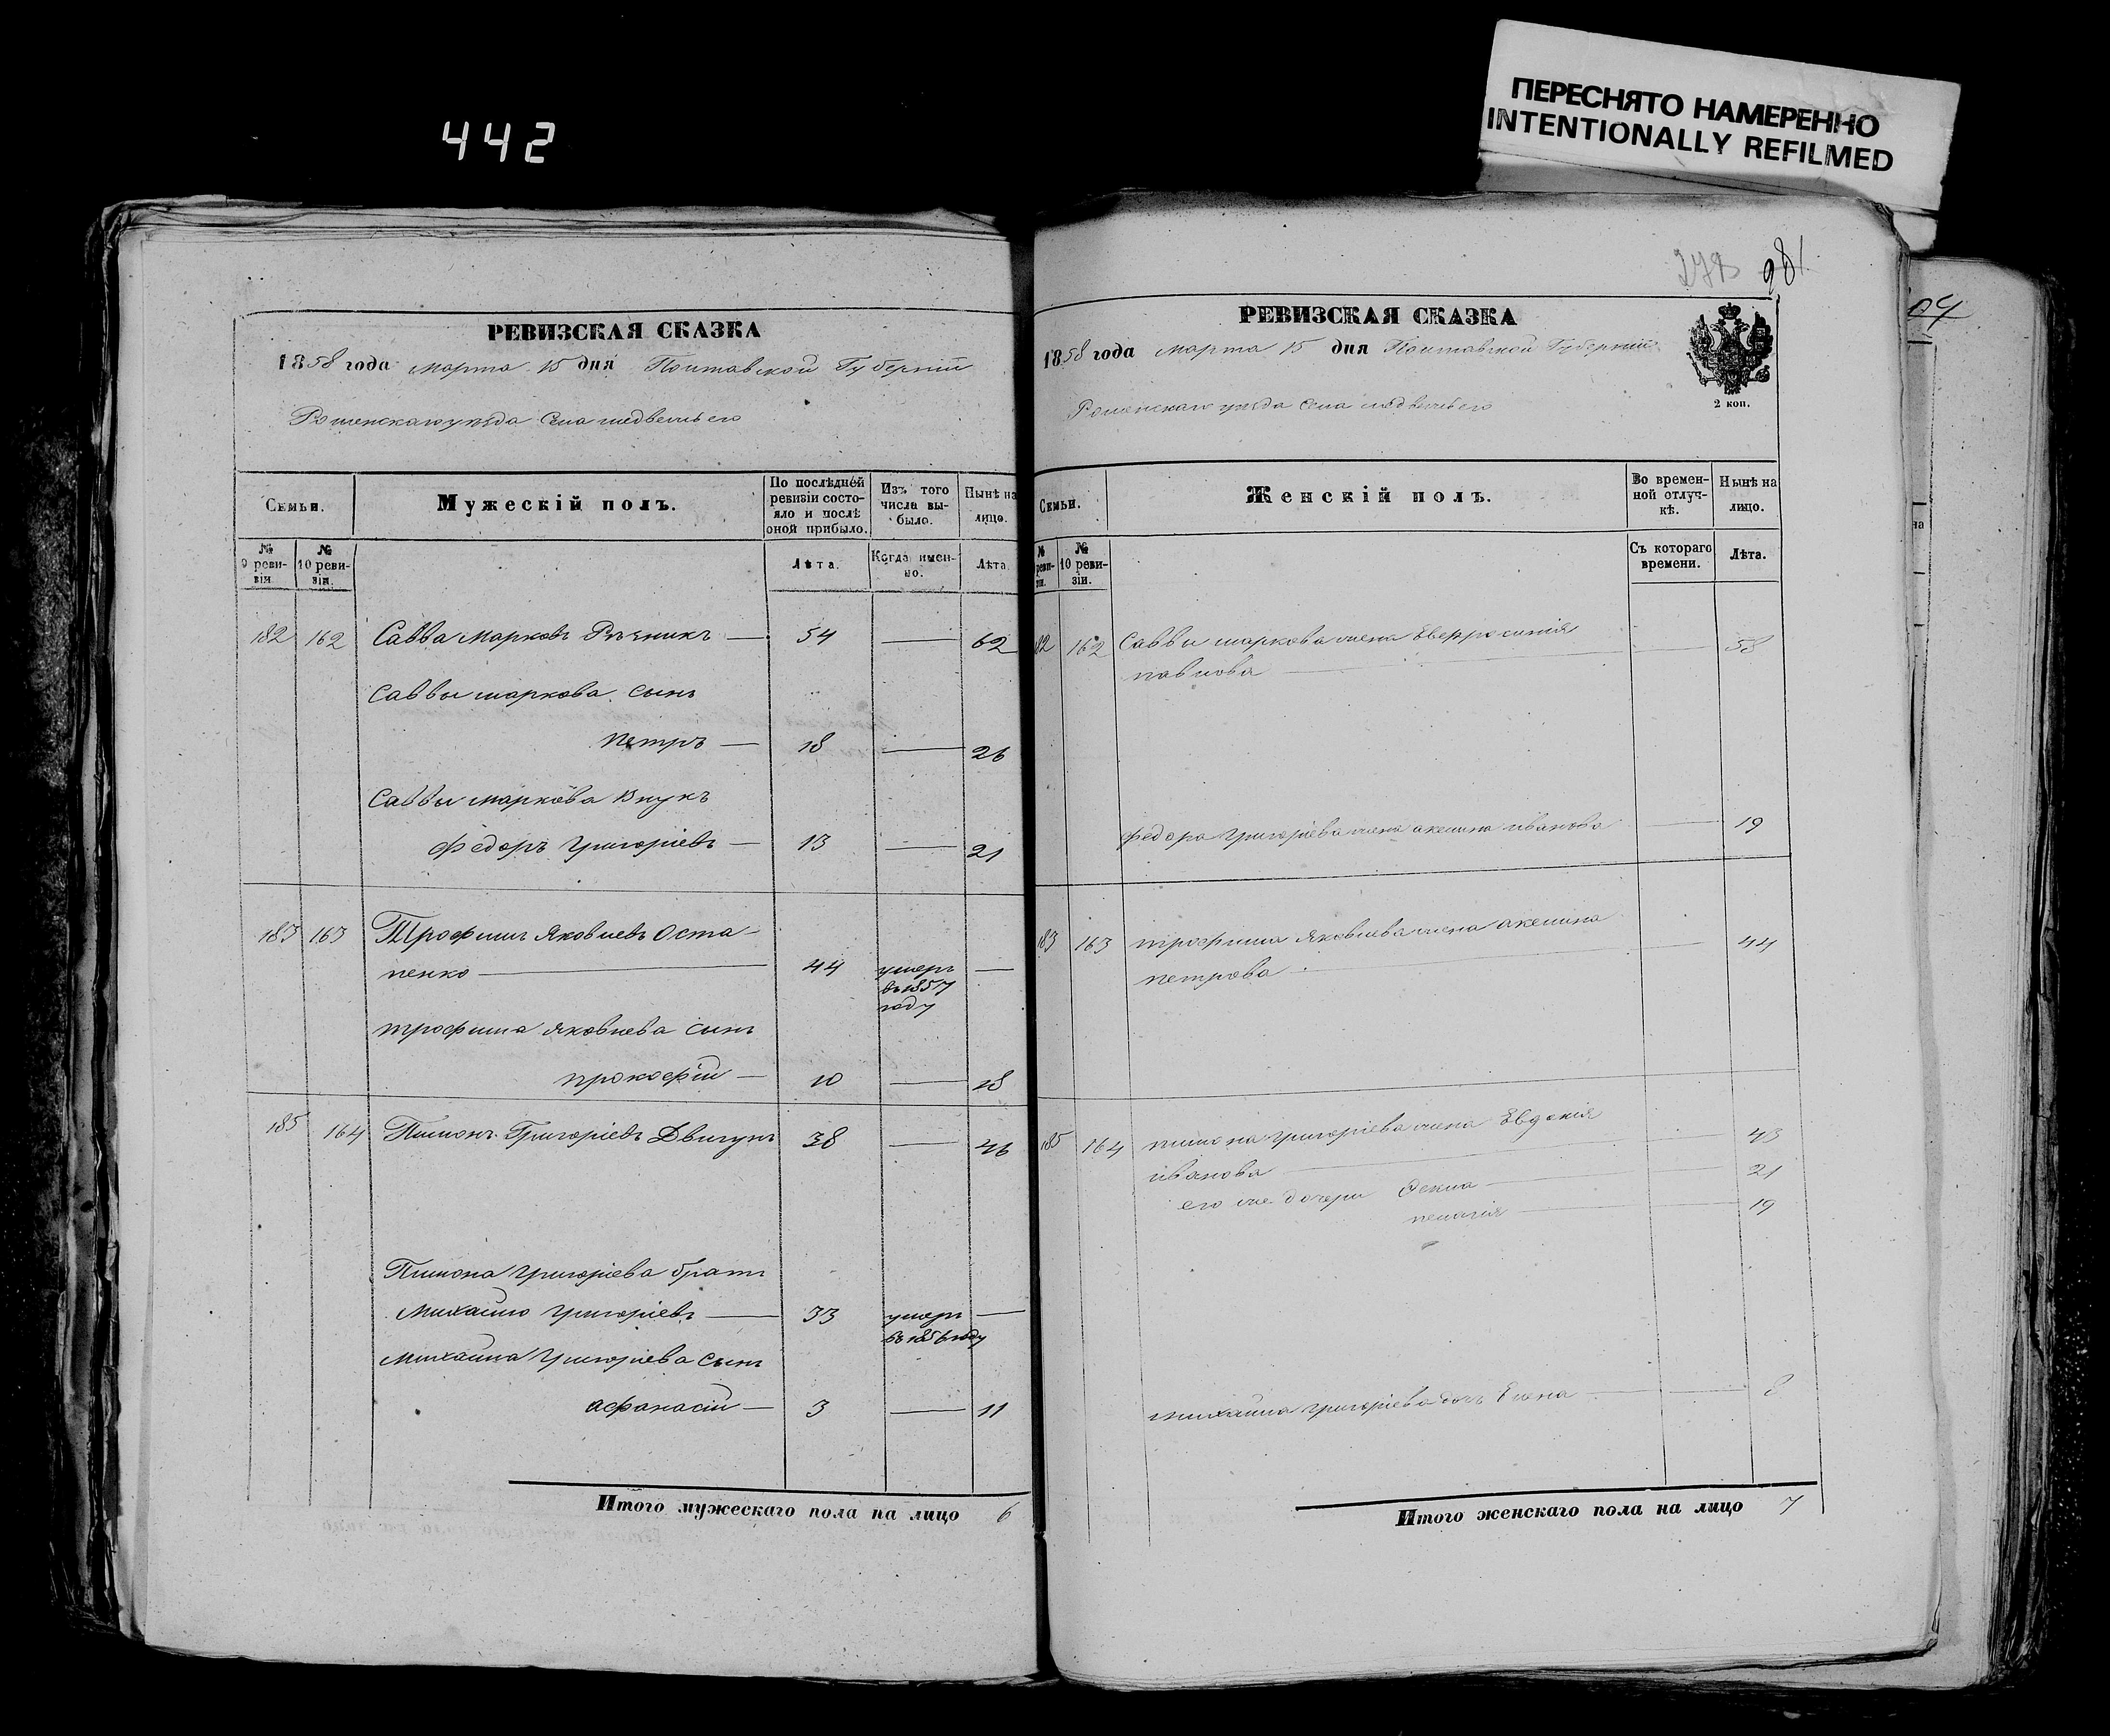 442
ПЕРЕСНЯТО НАМЕРЕННО
INTENTIONALLY REFILMED
РЕВИЗСКАЯ СКАЗКА
1858 года марта 15 дня Полтавской Губерніи
Роменскаго уезда Села медвежьего
Семьи.
Мужескій полъ.
По послѣдней ревизіи состояло и послѣ оной прибыло.
Изъ того числа выбыло.
Нынѣ на лицо.
№ 9 ревизія
№ 10 ревизіи.
Лѣта.
Когда именно.
Лѣта
182 162 Савва Марковъ Резникъ — 54 — 62
Саввы маркова сынъ
петръ — 18 — 26
Саввы маркова Внукъ
федоръ григоріевъ — 13 — 21
183 163 Трофимъ Яковлевъ Оста-
пенко — 44 умеръ —
въ 1857
году
трофима яковлева сынъ
прокофій — 10 — 18
185 164 Пимонъ Григоріевъ Двигунъ 38 — 46
Пимона григоріева братъ
михайло григоріевъ — 33 умеръ —
въ 1856 году
михайла григоріева сынъ
афанасій — 3 — 11
Итого мужескаго пола на лицо 6
281
РЕВИЗСКАЯ СКАЗКА
1858 года марта 15 дня Полтавской Губерніи
2 коп.
Роменскаго уезда Села медвежьего
Семьи.
Женскій полъ.
Во временной отлучкѣ.
Нынѣ на лицо.
№ реви-зіи.
№ 10 ревизіи.
Съ котораго времени.
Лѣта.
82 162 Саввы маркова жена Евфросинія
павлова — — 58
федора григоріева жена акелина иванова — 19
83 163 трофима яковлева жена акелина
петрова — 44
185 164 пимона григоріева жена Евдокія
иванова — 43
его же дочери Фекла — 21
пелагія — 19
михайла григоріева дочь Елена — — 8
Итого женскаго пола на лицо 7